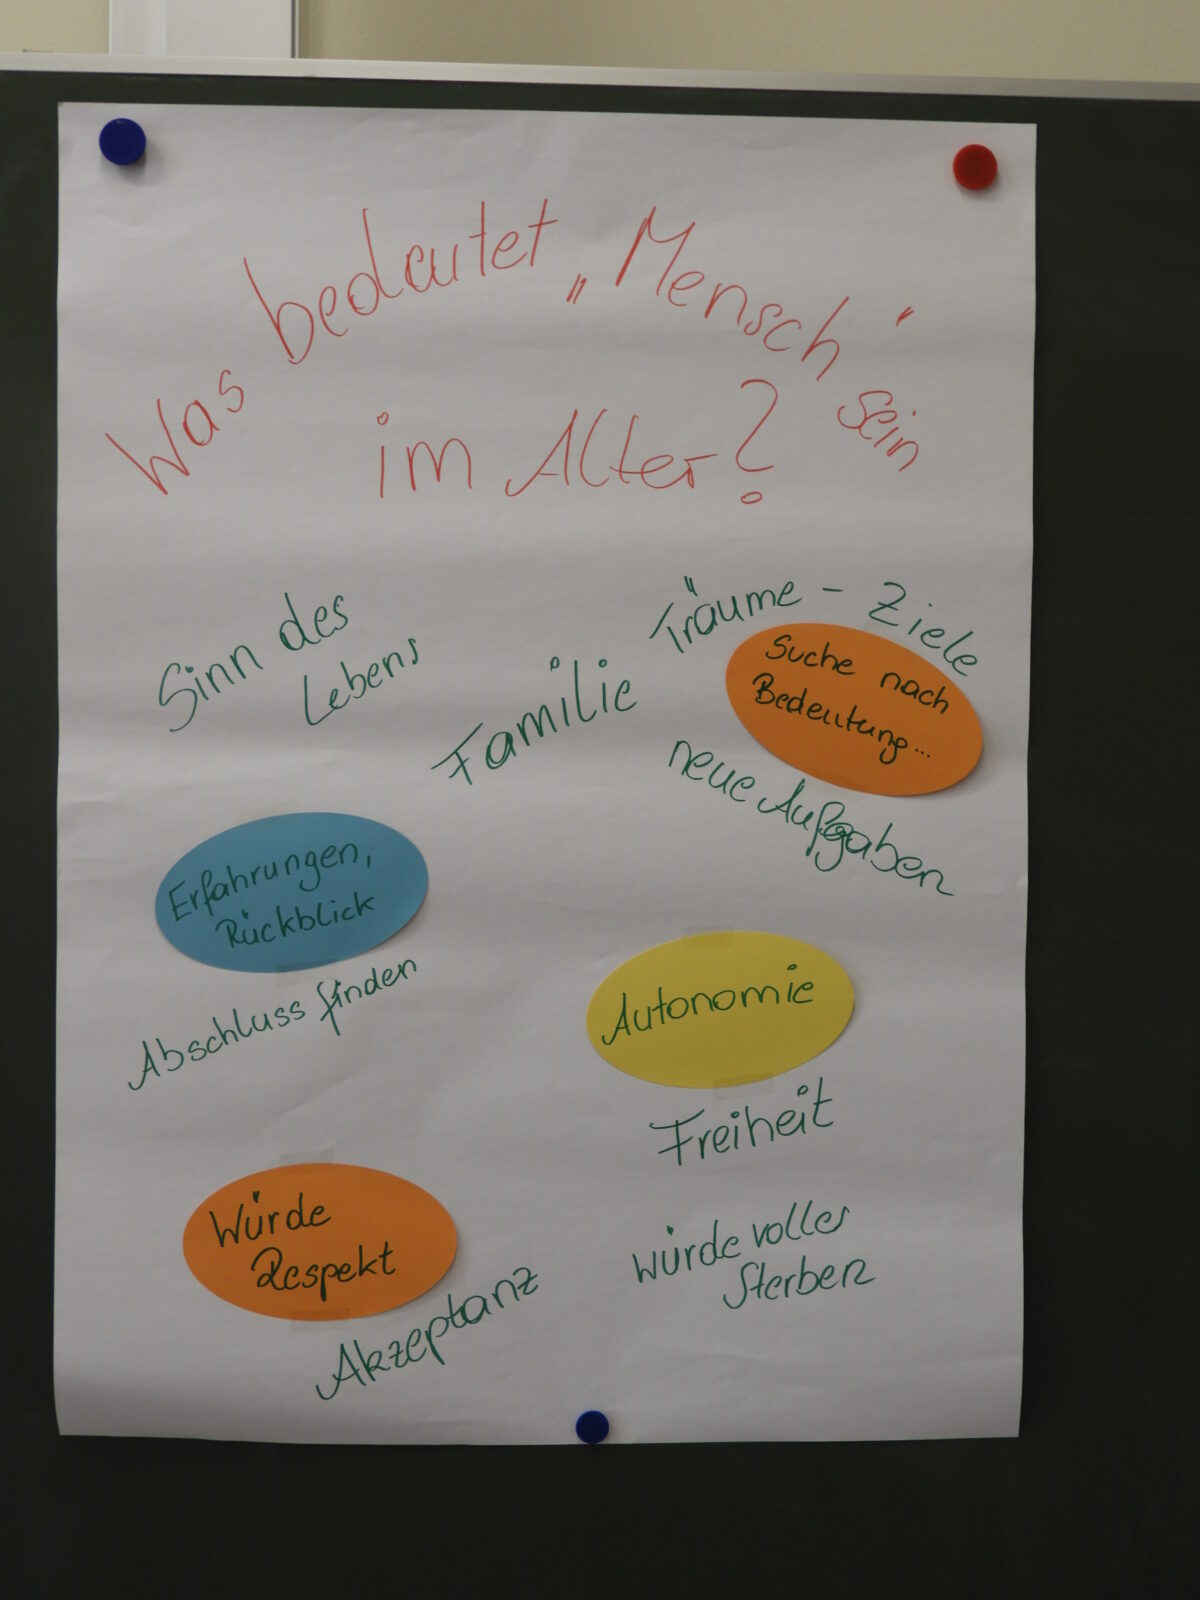 Was bedeutet „Mensch" sein
im Alter?
Sinn des
Lebens
Familie
Träume - Ziele
Suche nach
Bedeutung...
neue Aufgaben
Erfahrungen,
Rückblick
Abschluss finden
Autonomie
Freiheit
Würde
Respekt
Akzeptanz
würde voller
Sterben